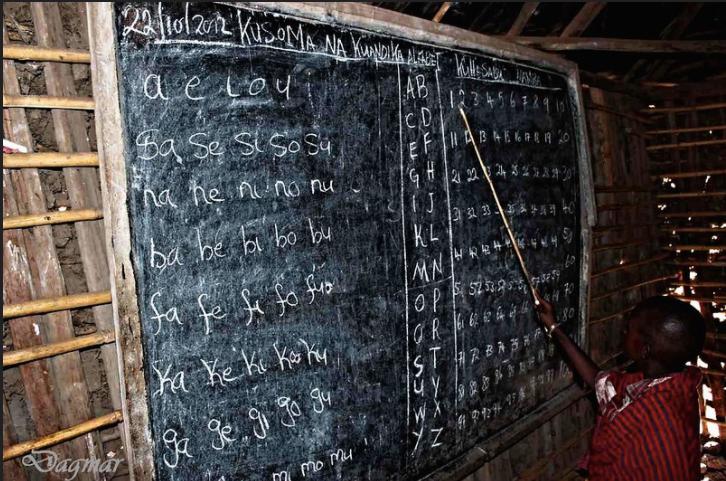 22/10/2012 KUSOMA NA KUANDIKA ALFABET
a e i o u
Sa Se Si So Su
na ne ni no nu
ba be bi bo bu
fa fe fi fo fu
Ka Ke Ki Ko Ku
ga ge gi go gu
mi mo mu
AB
CD
EF
GH
IJ
KL
MN
OP
QR
ST
UV
WX
YZ
KUHESABU
1 2 3 4 5 6 7 8 9 10
11 12 13 14 15 16 17 18 19 20
21 22 23 24 25 26 27 28 29 30
31 32 33 34 35 36 37 38 39 40
41 42 43 44 45 46 47 48 49 50
51 52 53 54 55 56 57 58 59 60
61 62 63 64 65 70
71 72 73 74 75 80
Dagmar